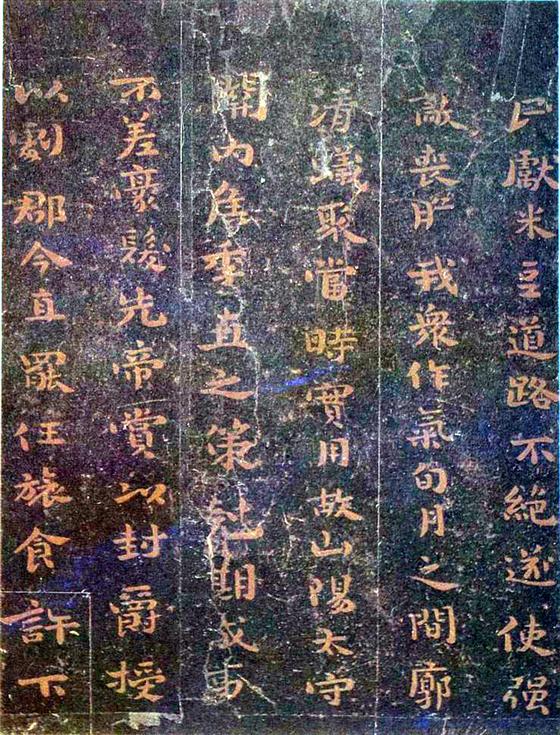 民獻米豆道路不絕遂使强
敵喪膽我衆作氣旬月之間廓
清蟻聚當時實用故山陽太守
關内侯季直之策尅期成事
不差豪髮先帝賞以封爵授
以劇郡今直罷任旅食許下